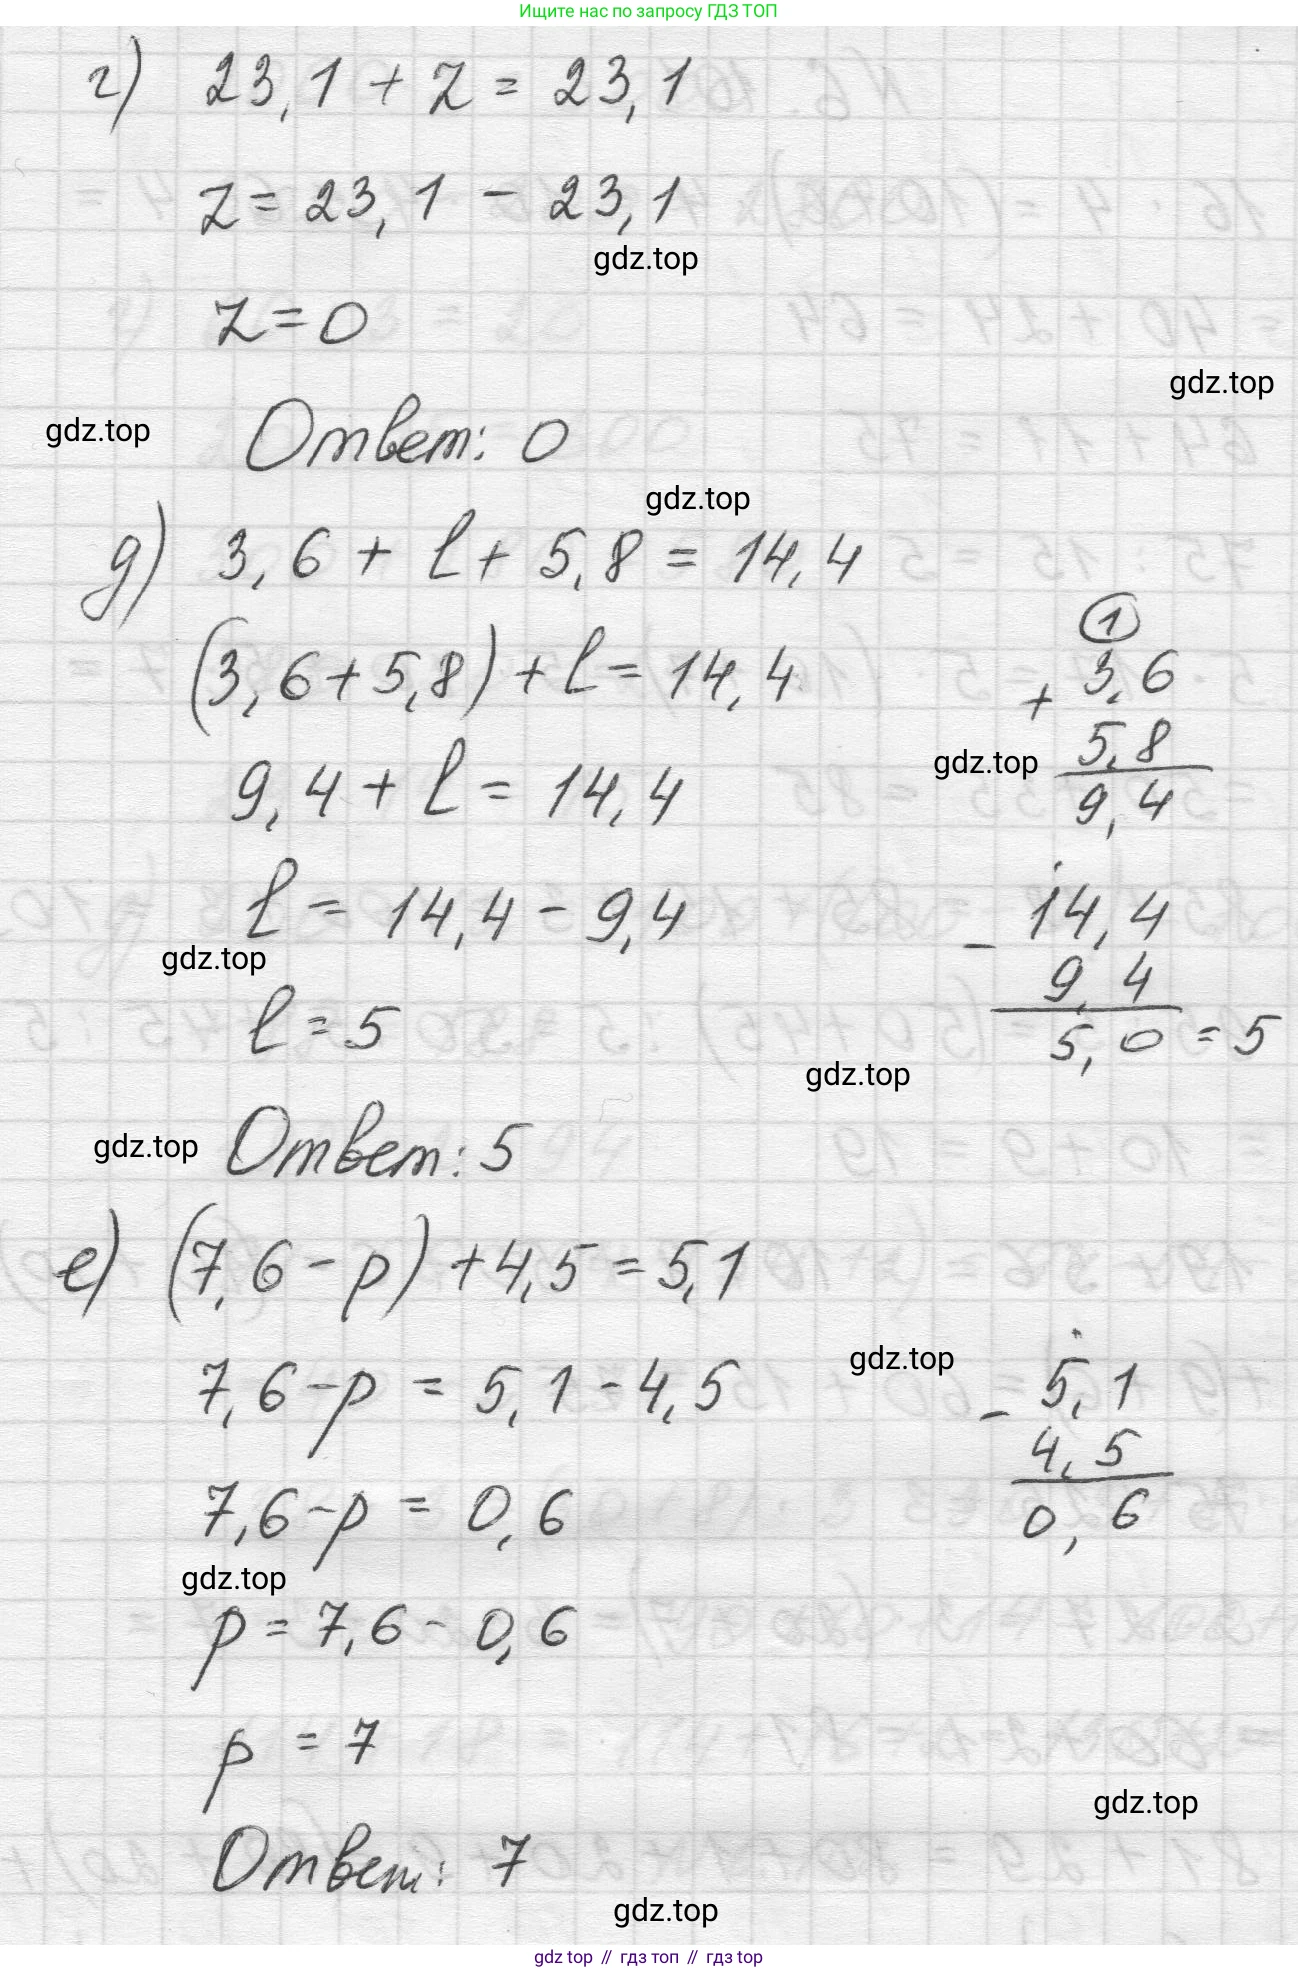 Ищите нас по запросу ГДЗ ТОП
г) 23,1 + z = 23,1
z = 23,1 - 23,1
gdz.top
z = 0
gdz.top
gdz.top
Ответ: 0
gdz.top
д) 3,6 + l + 5,8 = 14,4
(3,6 + 5,8) + l = 14,4
1
+ 3,6
5,8
9,4
gdz.top
9,4 + l = 14,4
l = 14,4 - 9,4
- 14,4
9,4
5,0 = 5
gdz.top
l = 5
gdz.top
gdz.top
Ответ: 5
е) (7,6 - p) + 4,5 = 5,1
gdz.top
7,6 - p = 5,1 - 4,5
- 5,1
4,5
0,6
7,6 - p = 0,6
gdz.top
p = 7,6 - 0,6
p = 7
gdz.top
Ответ: 7
gdz.top
gdz top // гдз топ // гдз top